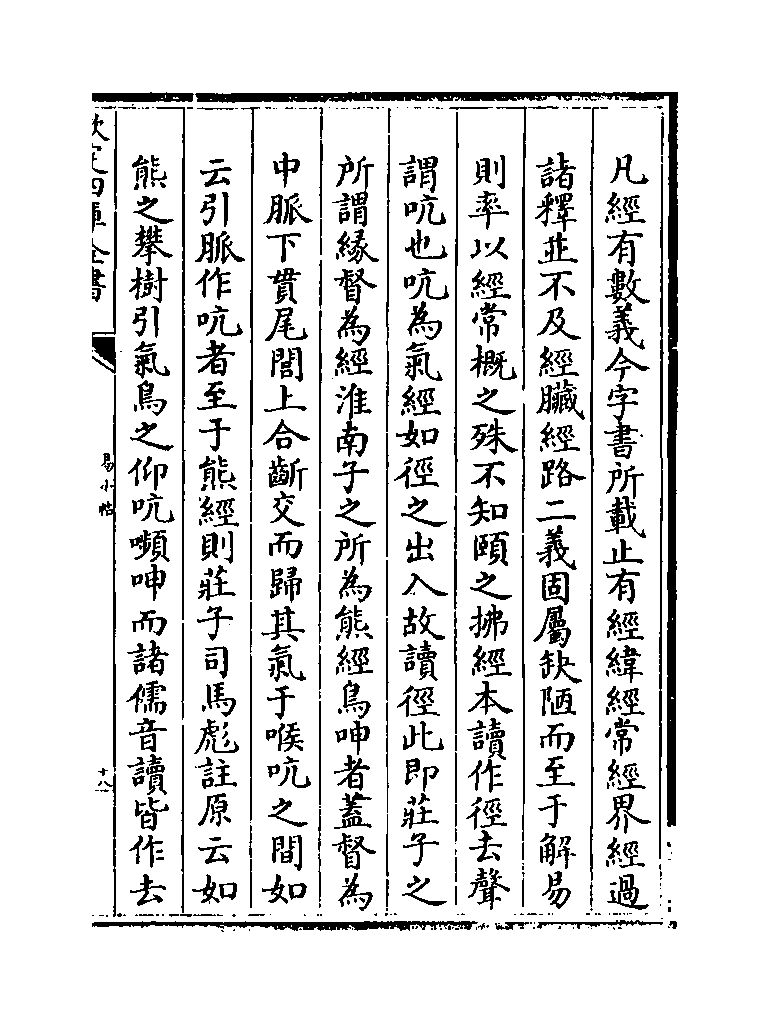 凡經有數義今字書所載止有經緯經常經界經過
諸釋並不及經臟經路二義固屬缺陋而至于解易
則率以經常概之殊不知頤之拂經本讀作徑去聲
謂吭也吭為氣經如徑之出入故讀徑此即莊子之
所謂緣督為經淮南子之所為熊經鳥呻者蓋督為
中脈下貫尾閭上合齗交而歸其氣于喉吭之間如
云引脈作吭者至于熊經則莊子司馬彪註原云如
熊之攀樹引氣鳥之仰吭嚬呻而諸儒音讀皆作去
欽定四庫全書
易小帖
十八